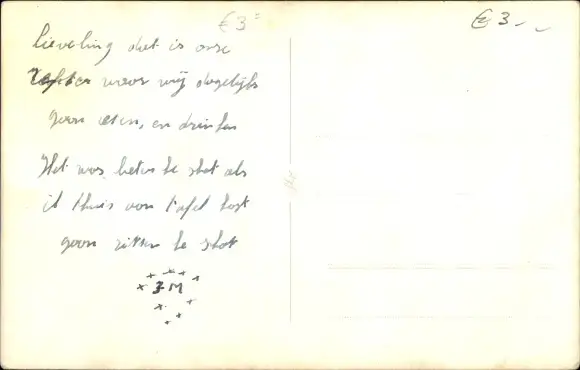 € 3 =
€ 3 -
lieveling dat is onse
waar wij dagelijks
gaan eten, en drinken
Het was beter te shot als
ik thuis aan tafel kost
gaan zitten te shot
J M